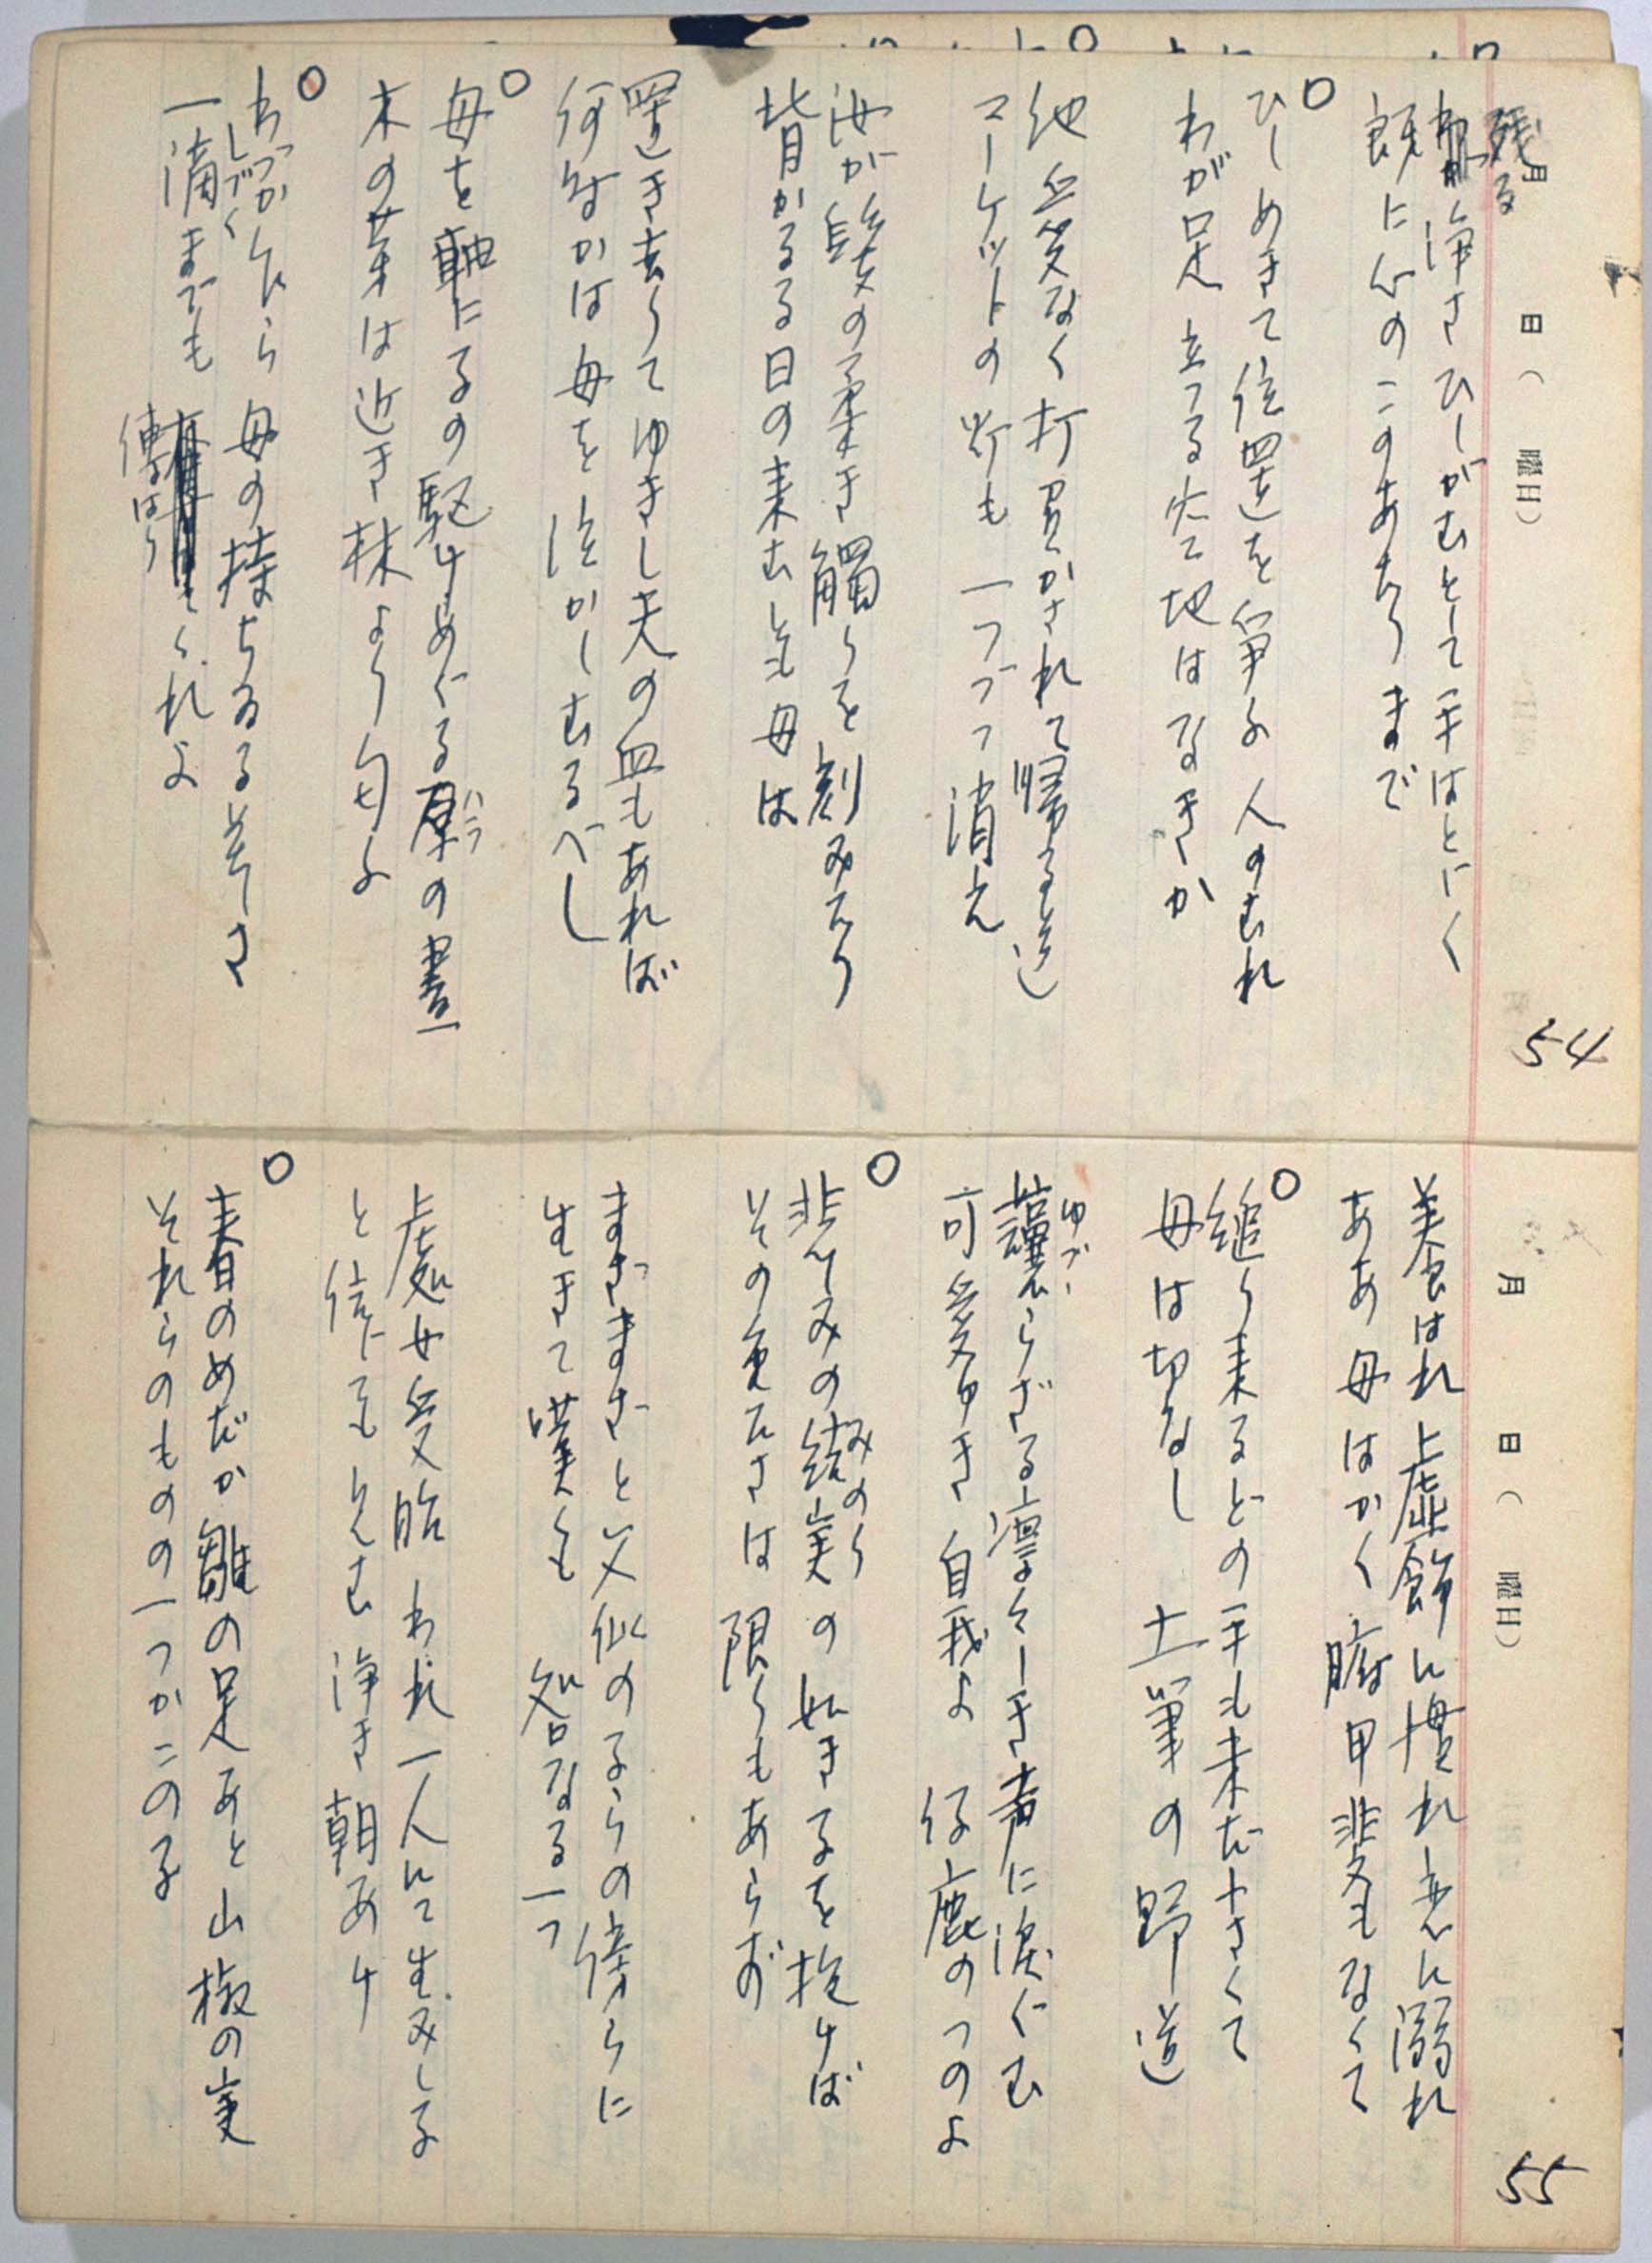 月 日( 曜日)
54
残る
浄さひしがむとして手はとどく
既に心のこのあたりまで
○
ひしめきて位置を争ふ人のむれ
わが足立つる大地はなきか
他愛なく打負かされて帰る道
マーケットの灯も一つづつ消え
汝が髪の柔き觸りを刻みたり
背かるる日の来むとも母は
置き去りてゆきし夫の血もあれば
何なかは母を泣かしむるべし
○
母を軸に子の駆けめぐる原の晝
ハラ
木の芽は近き林より匂ふ
○
わづか乍ら母の持ちゐる美しさ
しづく
一滴までも
傳はり
くれよ
月 日( 曜日)
55
美食はれ虚飾に埋れ恋に溺れ
ああ母はかく腑甲斐もなくて
○
縋り来るどの手も未だ小さくて
母は切なし 土筆の野道
ゆづ
讓らざる凛々しき声に涙ぐむ
可愛ゆき自我よ 仔鹿のつのよ
○
悲しみの結実の如き子を抱けば
みのり
その重たさは限りもあらず
まざまざと父似の子らの傍らに
生きて嘆くも 智なる一つ
處女受胎 われ一人にて生みし子
と信じても見む浄き朝あけ
○
春のめだか雛の足あと山椒の実
それらのものの一つかこの子